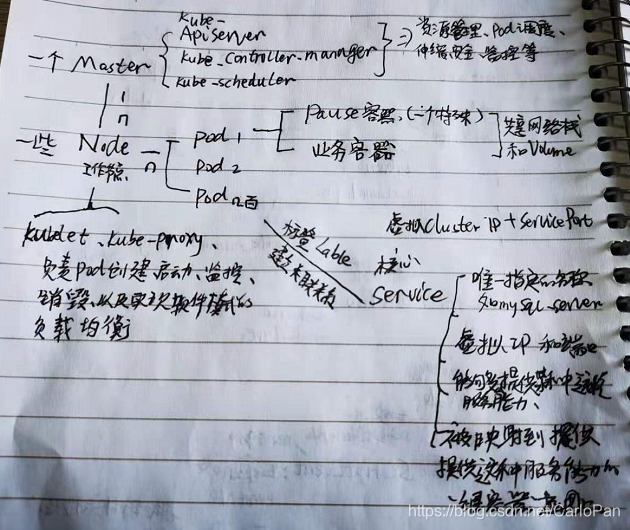 Kube-
ApiServer
一个 Master
kube_Controller_manager
kube_scheduler
=> 资源管理、Pod调度、
伸缩、安全、监控等
1
n
一些 Node
工作节点
n
pod 1
pod 2
pod n
Pause容器,(一个特殊)
业务容器
共享网络栈
和Volume
kublet、kube-proxy、
负责Pod创建、启动、监控、
销毁、以及实现软件模式的
负载均衡
标签Lable
建立关联
虚拟Cluster IP + Service Port
核心
Service
唯一指定的名称
如mysql-server
虚拟IP和端口
能够提供某种远程
服务能力、
被映射到提供
提供这种服务能力的
一组容器
https://blog.csdn.net/CarloPan